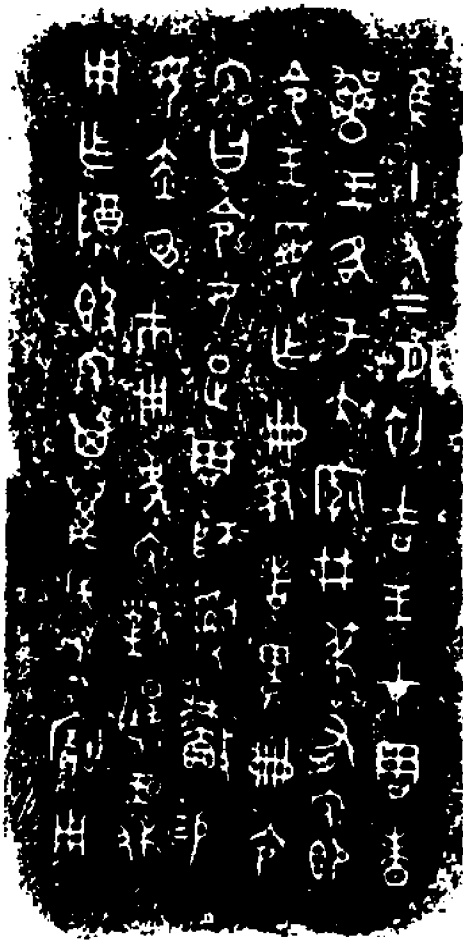 隹十又二月初吉王才周昧
爽王各于大廟井叔有免即
令王受乍冊尹者卑冊令
免曰令女疋周師𤔲林易
女赤⊙巿用事免對揚王休
用乍尊𣪘免其萬年永寶用